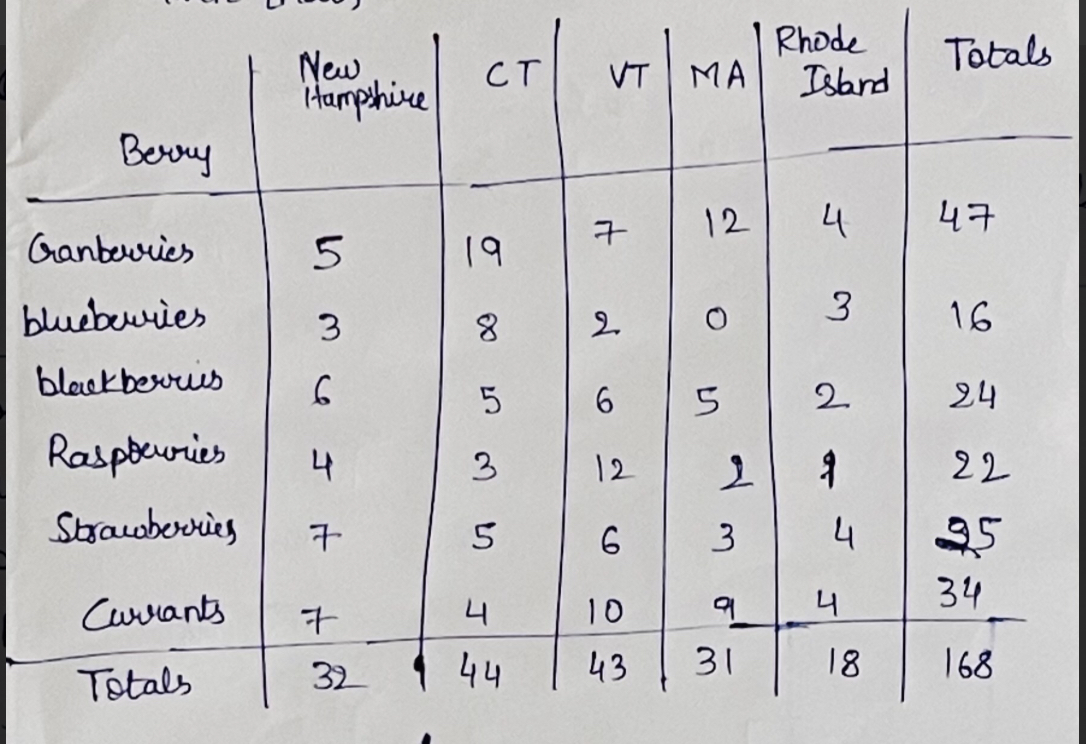 Berry New Hampshire CT VT MA Rhode Island Totals
Cranberries 5 19 7 12 4 47
blueberries 3 8 2 0 3 16
blackberries 6 5 6 5 2 24
Raspberries 4 3 12 2 1 22
Strawberries 7 5 6 3 4 25
Currants 7 4 10 9 4 34
Totals 32 44 43 31 18 168